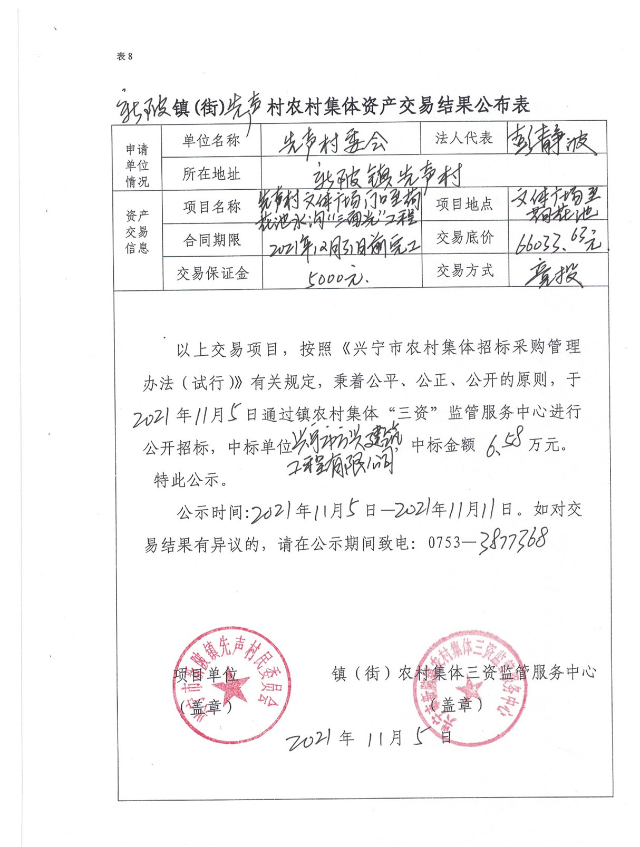 表8
新陂镇(街)先声村农村集体资产交易结果公布表
申请单位情况
单位名称 先声村委会 法人代表 彭静波
所在地址 新陂镇先声村
资产交易信息
项目名称 先声村文体广场门口至荷花池水沟“三面光”工程 项目地点 文体广场至荷花池
合同期限 2021年12月31日前完工 交易底价 66033.63元
交易保证金 5000元. 交易方式 竞投
以上交易项目，按照《兴宁市农村集体招标采购管理
办法（试行）》有关规定，秉着公平、公正、公开的原则，于
2021年11月5日通过镇农村集体“三资”监管服务中心进行
公开招标，中标单位兴宁市兴建筑工程有限公司，中标金额 6.58 万元。
特此公示。
公示时间:2021年11月5日—2021年11月11日。如对交
易结果有异议的，请在公示期间致电：0753—3877368
项目单位 镇（街）农村集体三资监管服务中心
（盖章） （盖章）
兴宁市新陂镇先声村民委员会
2021年11月5日